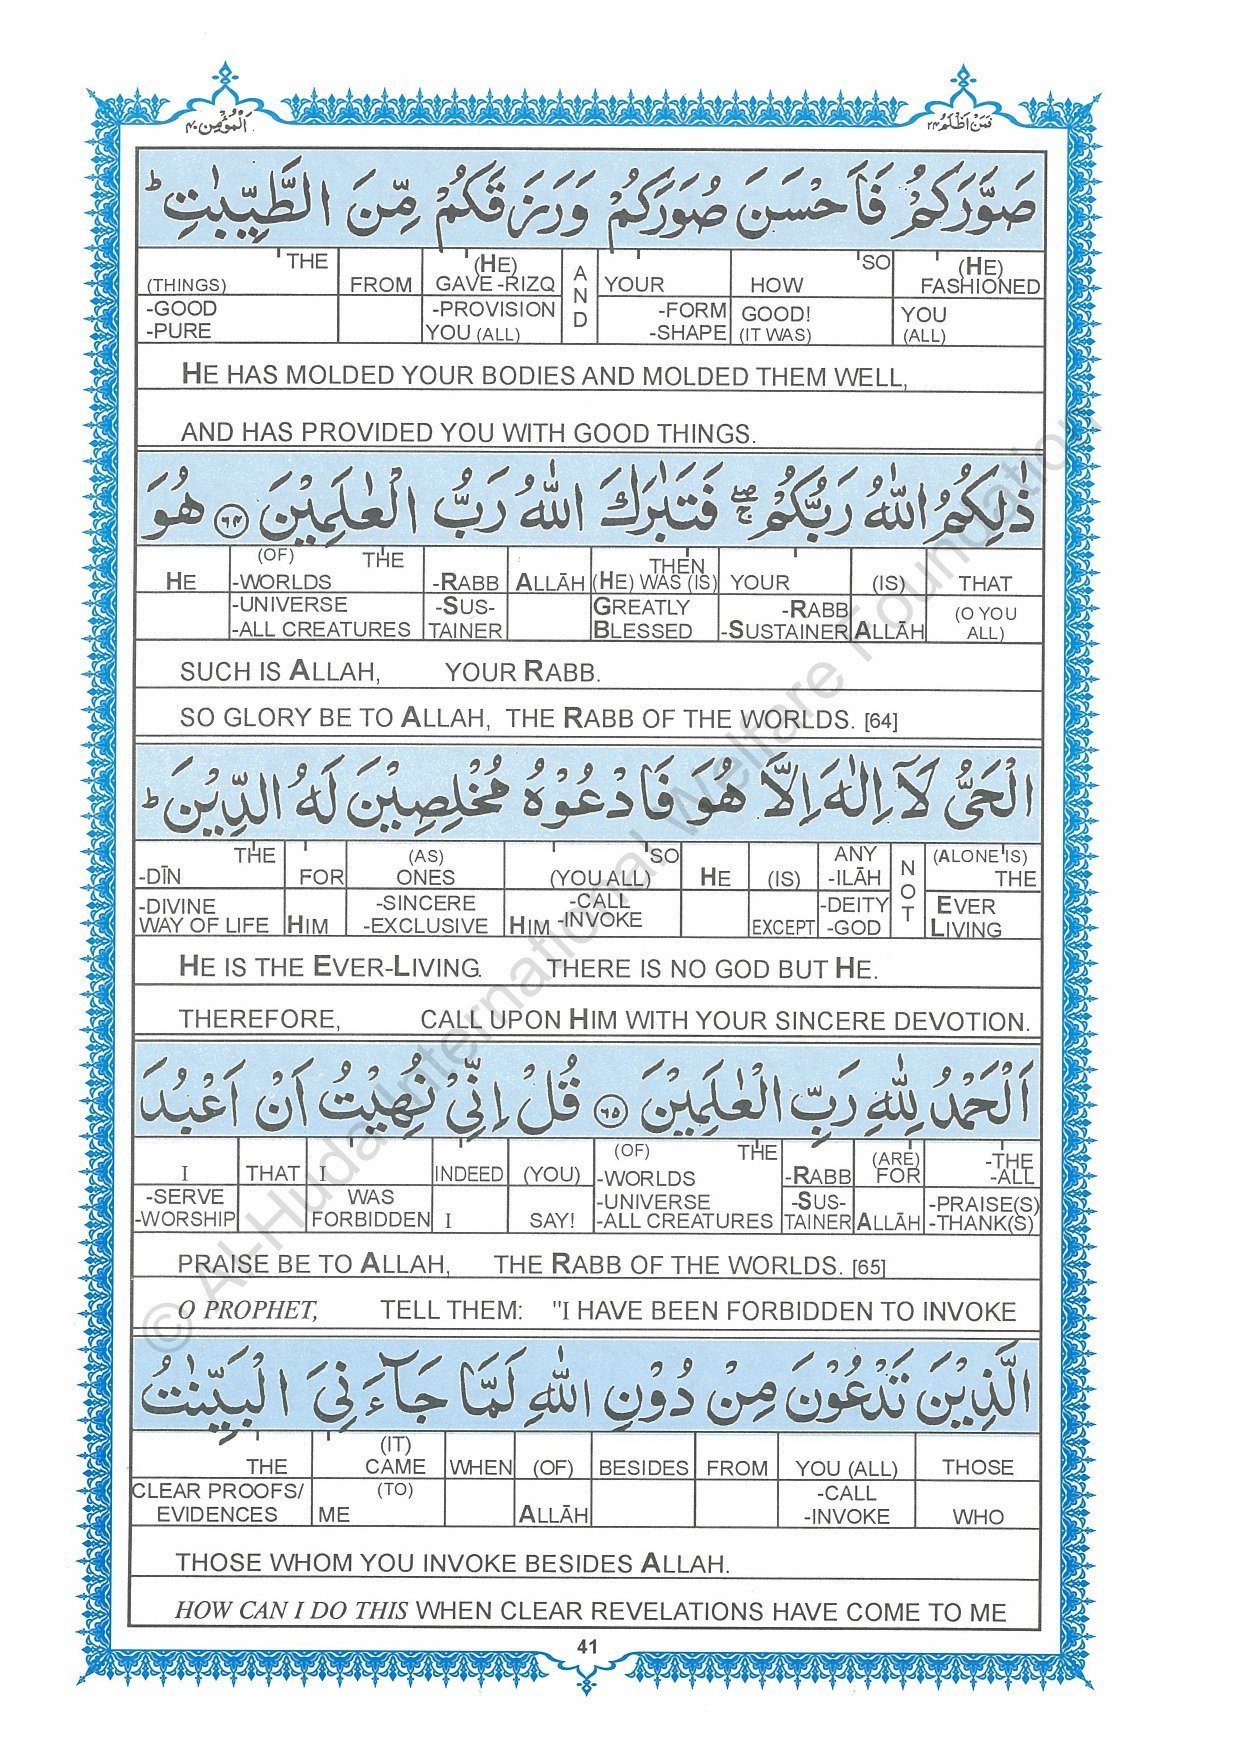 اَلْمُؤْمِن ۴۰
فَمَنْ اَظْلَمُ ۲۴
صَوَّرَكُمْ فَاَحْسَنَ صُوَرَكُمْ وَرَزَقَكُمْ مِّنَ الطَّيِّبٰتِ ؕ
THE (HE) SO (HE)
(THINGS) FROM GAVE -RIZQ AND YOUR HOW FASHIONED
-GOOD -PROVISION -FORM GOOD! YOU
-PURE YOU (ALL) -SHAPE (IT WAS) (ALL)
HE HAS MOLDED YOUR BODIES AND MOLDED THEM WELL,
AND HAS PROVIDED YOU WITH GOOD THINGS.
ذٰلِكُمُ اللّٰهُ رَبُّكُمْ ۖۚ فَتَبٰرَكَ اللّٰهُ رَبُّ الْعٰلَمِيْنَ ﴿۶۴﴾ هُوَ
(OF) THE THEN
HE -WORLDS -RABB ALLĀH (HE) WAS (IS) YOUR (IS) THAT
-UNIVERSE -SUS- GREATLY -RABB (O YOU
-ALL CREATURES TAINER BLESSED -SUSTAINER ALLĀH ALL)
SUCH IS ALLAH, YOUR RABB.
SO GLORY BE TO ALLAH, THE RABB OF THE WORLDS. [64]
الْحَىُّ لَآ اِلٰهَ اِلَّا هُوَ فَادْعُوْهُ مُخْلِصِيْنَ لَهُ الدِّيْنَ ؕ
THE (AS) SO ANY (ALONE IS)
-DĪN FOR ONES (YOU ALL) HE (IS) -ILĀH NOT THE
-DIVINE -SINCERE -CALL -DEITY EVER
WAY OF LIFE HIM -EXCLUSIVE HIM -INVOKE EXCEPT -GOD LIVING
HE IS THE EVER-LIVING. THERE IS NO GOD BUT HE.
THEREFORE, CALL UPON HIM WITH YOUR SINCERE DEVOTION.
اَلْحَمْدُ لِلّٰهِ رَبِّ الْعٰلَمِيْنَ ﴿۶۵﴾ قُلْ اِنِّىْ نُهِيْتُ اَنْ اَعْبُدَ
(OF) THE (ARE) -THE
I THAT I INDEED (YOU) -WORLDS -RABB FOR -ALL
-SERVE WAS -UNIVERSE -SUS- -PRAISE(S)
-WORSHIP FORBIDDEN I SAY! -ALL CREATURES TAINER ALLĀH -THANK(S)
PRAISE BE TO ALLAH, THE RABB OF THE WORLDS. [65]
O PROPHET, TELL THEM: "I HAVE BEEN FORBIDDEN TO INVOKE
الَّذِيْنَ تَدْعُوْنَ مِنْ دُوْنِ اللّٰهِ لَمَّا جَآءَنِىَ الْبَيِّنٰتُ
(IT)
THE CAME WHEN (OF) BESIDES FROM YOU (ALL) THOSE
CLEAR PROOFS/ (TO) -CALL
EVIDENCES ME ALLĀH -INVOKE WHO
THOSE WHOM YOU INVOKE BESIDES ALLAH.
HOW CAN I DO THIS WHEN CLEAR REVELATIONS HAVE COME TO ME
41
© Al-Huda International Welfare Foundation